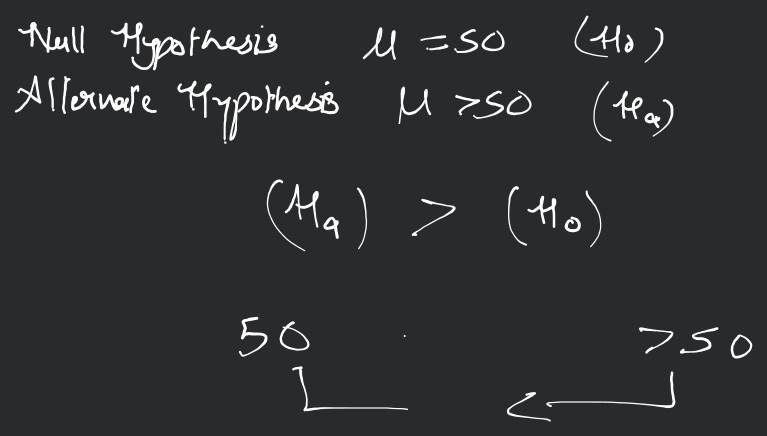 Null Hypothesis μ = 50 (H₀)
Alternate Hypothesis μ > 50 (Hₐ)
(Hₐ) > (H₀)
50 > 50